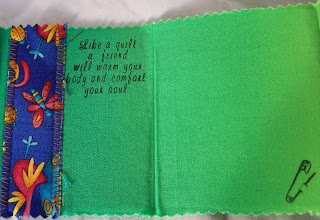 Like a quilt
a friend
will warm your
body and comfort
your soul